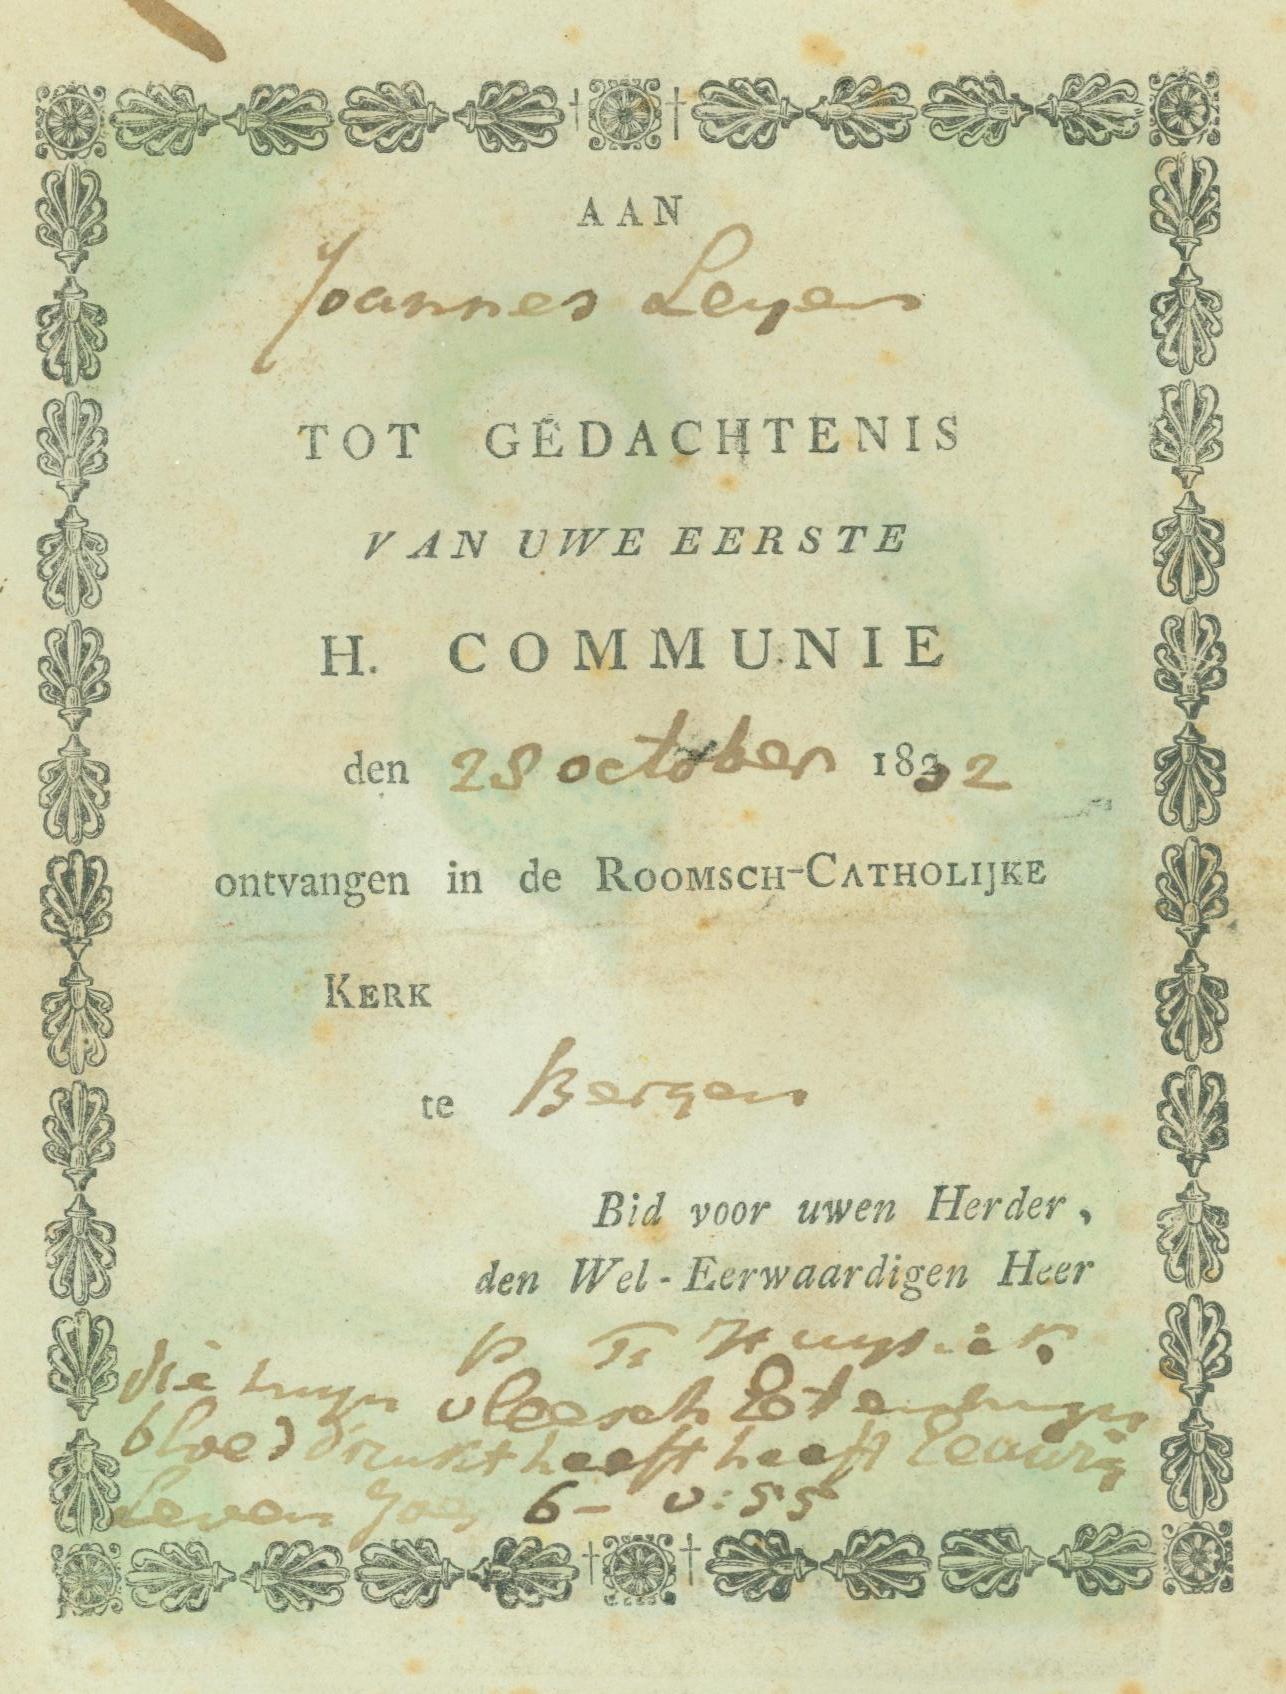 AAN
Joannes Leyen
TOT GEDACHTENIS
VAN UWE EERSTE
H. COMMUNIE
den 28 october 1832
ontvangen in de ROOMSCH-CATHOLIJKE
KERK
te Bergen
Bid voor uwen Herder,
den Wel-Eerwaardigen Heer
P
die myn vleesch en myn
bloed drinkt heeft heeft eeuwig
Leven Joes 6- v:55